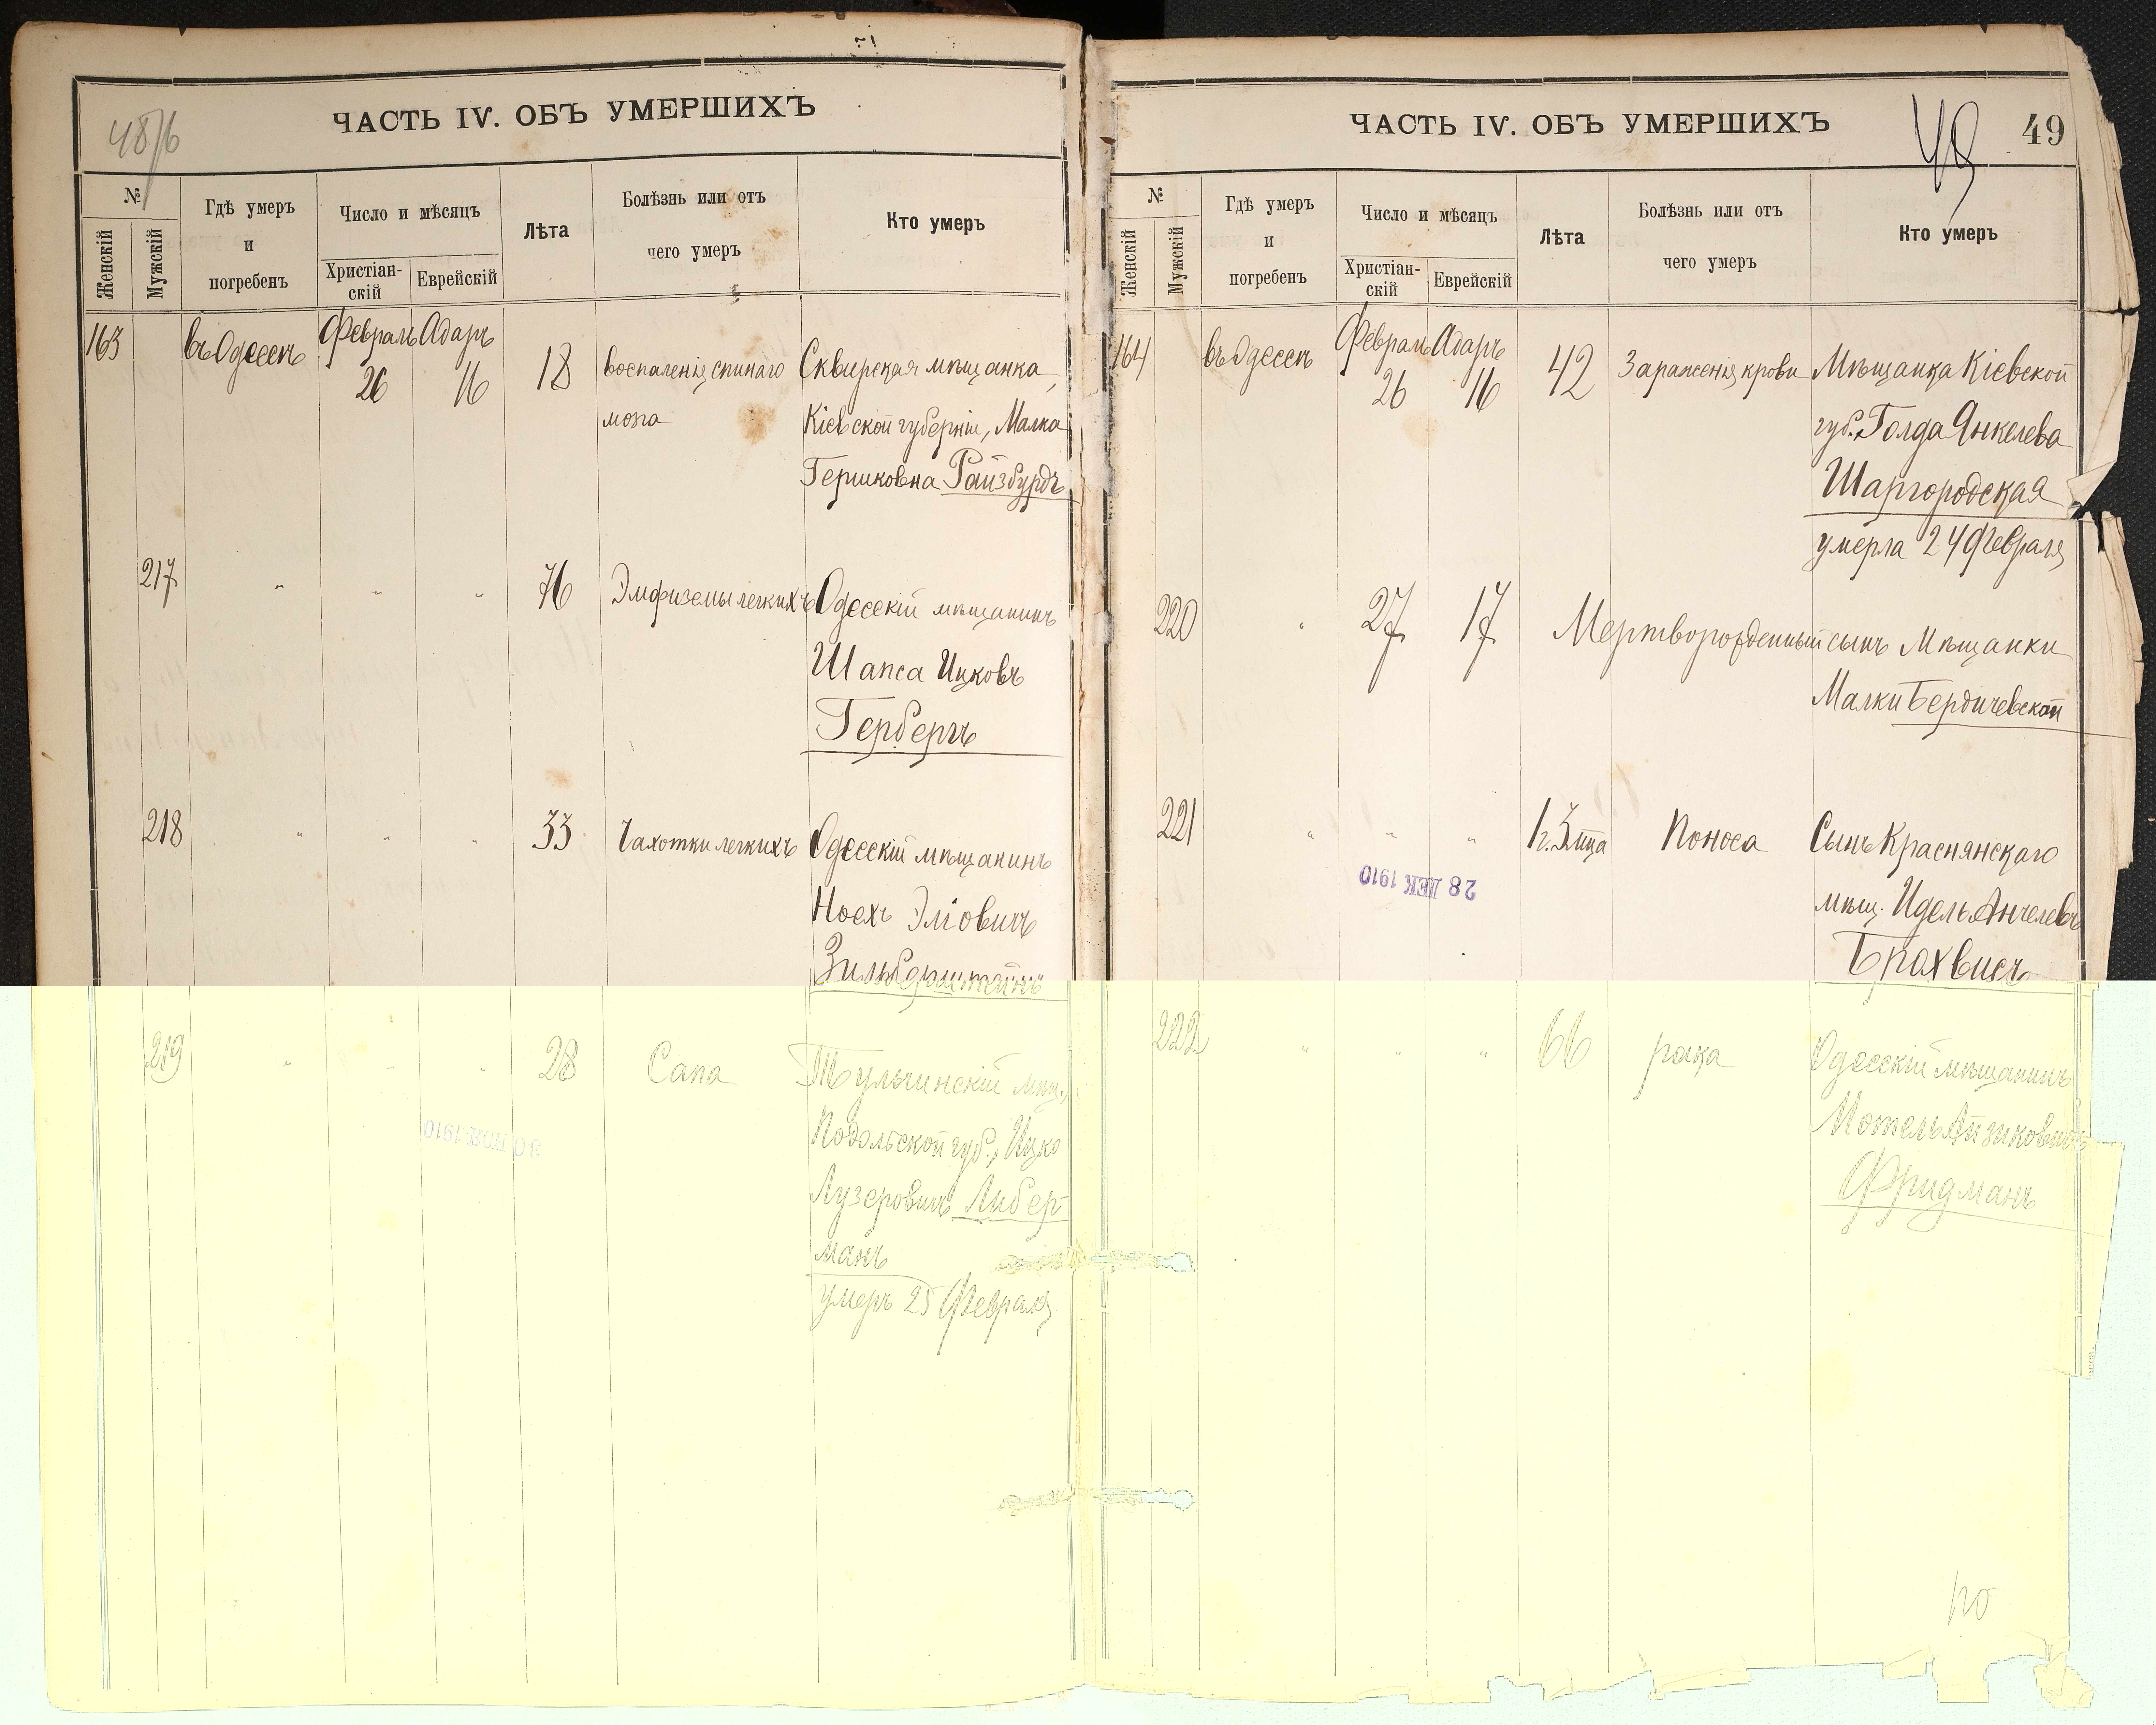 ЧАСТЬ IV. ОБЪ УМЕРШИХЪ
№
Женскій
Мужскій
Гдѣ умеръ
и
погребенъ
Число и мѣсяцъ
Христіан-
скій
Еврейскій
Лѣта
Болѣзнь или отъ
чего умеръ
Кто умеръ
163 въ Одессѣ Февраль 26 Адаръ 16 18 воспаленія спиннаго Сквирская мѣщанка,
мозга Кіевской губерніи, Малка
Гершковна Райзбурдъ
217 " " " 76 Эмфиземы легкихъ Одесскій мѣщанинъ
Шапса Ицковъ
Герберъ
218 " " " 33 Чахотки легкихъ Одесскій мѣщанинъ
Ноехъ Эліовичъ
Зильберштейнъ
219 " " " 28 Сапа Тульчинскій мѣщ.,
Подольской губ., Ицко
Лузеровичъ Либер-
манъ
умеръ 25 Февраля
ЧАСТЬ IV. ОБЪ УМЕРШИХЪ
49
49
№
Женскій
Мужскій
Гдѣ умеръ
и
погребенъ
Число и мѣсяцъ
Христіан-
скій
Еврейскій
Лѣта
Болѣзнь или отъ
чего умеръ
Кто умеръ
164 въ Одессѣ Февраль 26 Адаръ 16 42 Зараженія крови Мѣщанка Кіевской
губ. Голда Янкелева
Шаргородская
умерла 24 Февраля
220 " 27 17 Мертворожденный сынъ Мѣщанки
Малки Бердичевской
221 " " " 1 г. 3 мца Поноса Сынъ Краснянскаго
мѣщ. Идель Анчелевъ
Брахвисъ
28 ДЕК 1910
222 " " " 66 рака Одесскій мѣщанинъ
Мотель Айзиковичъ
Фридманъ